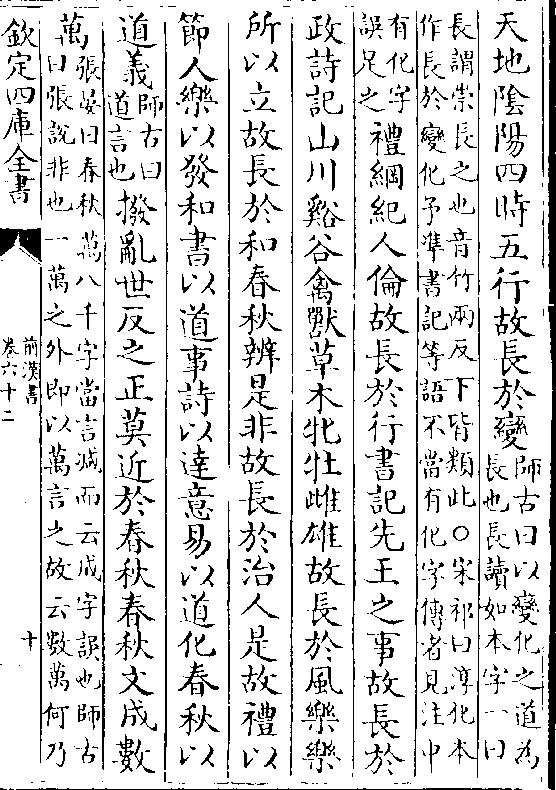 天地陰陽四時五行故長於變師古曰以變化之道為
長也長讀如本字一曰
長謂崇長之也音竹兩反下皆類此○宋祁曰淳化本
作長於變化予準書記等語不當有化字傳者見注中
有化字
誤足之禮綱紀人倫故長於行書記先王之事故長於
政詩記山川谿谷禽獸草木牝牡雌雄故長於風樂樂
所以立故長於和春秋辨是非故長於治人是故禮以
節人樂以發和書以道事詩以達意易以道化春秋以
道義師古曰
道言也撥亂世反之正莫近於春秋春秋文成數
萬張晏曰春秋萬八千字當言減而云成字誤也師古
曰張說非也一萬之外即以萬言之故云數萬何乃
欽定四庫全書
前漢書
卷六十二
十